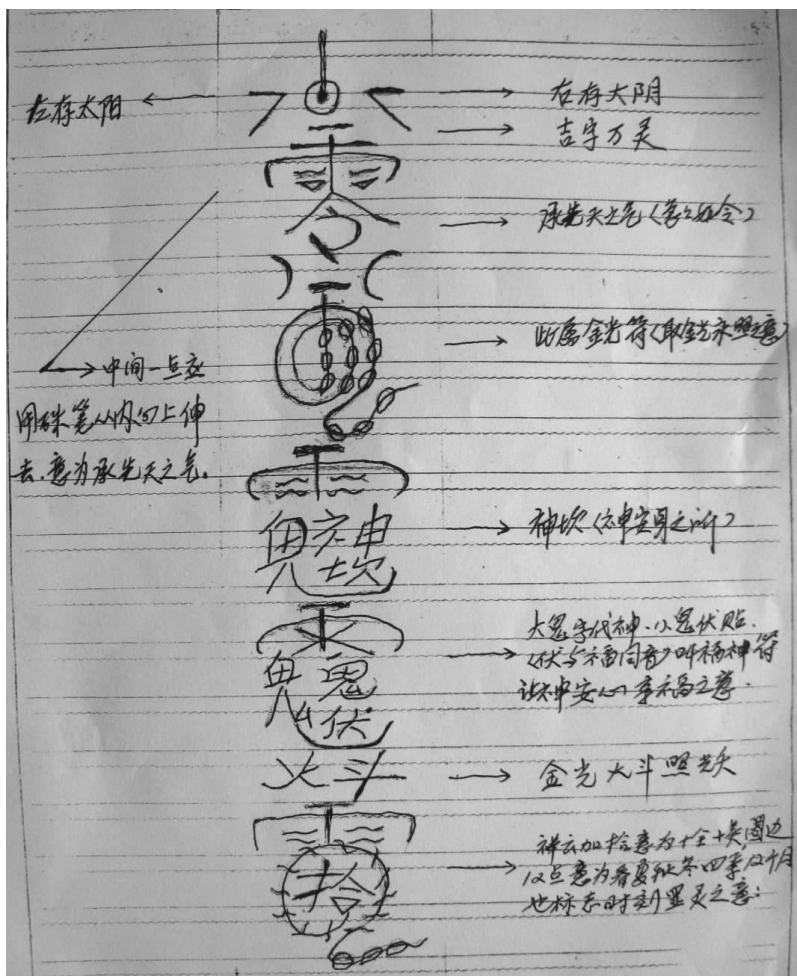 左存太阳
右存太阴
吉字万灵
承先天之气
此属金光符(取金光永照之意)
中间一点应
用硃笔从内向上伸
去,意为承先天之气。
鬼神坎
神坎(神安身之所)
大鬼字代神,小鬼伏贴.
(伏与福同音)叫福神符
让神安心享福之意.
鬼鬼伏
火斗
金光火斗照
祥云加拾意为十全十美,圈边
12点意为春夏秋冬四季,12个月
也标志时刻显灵之意:
拾